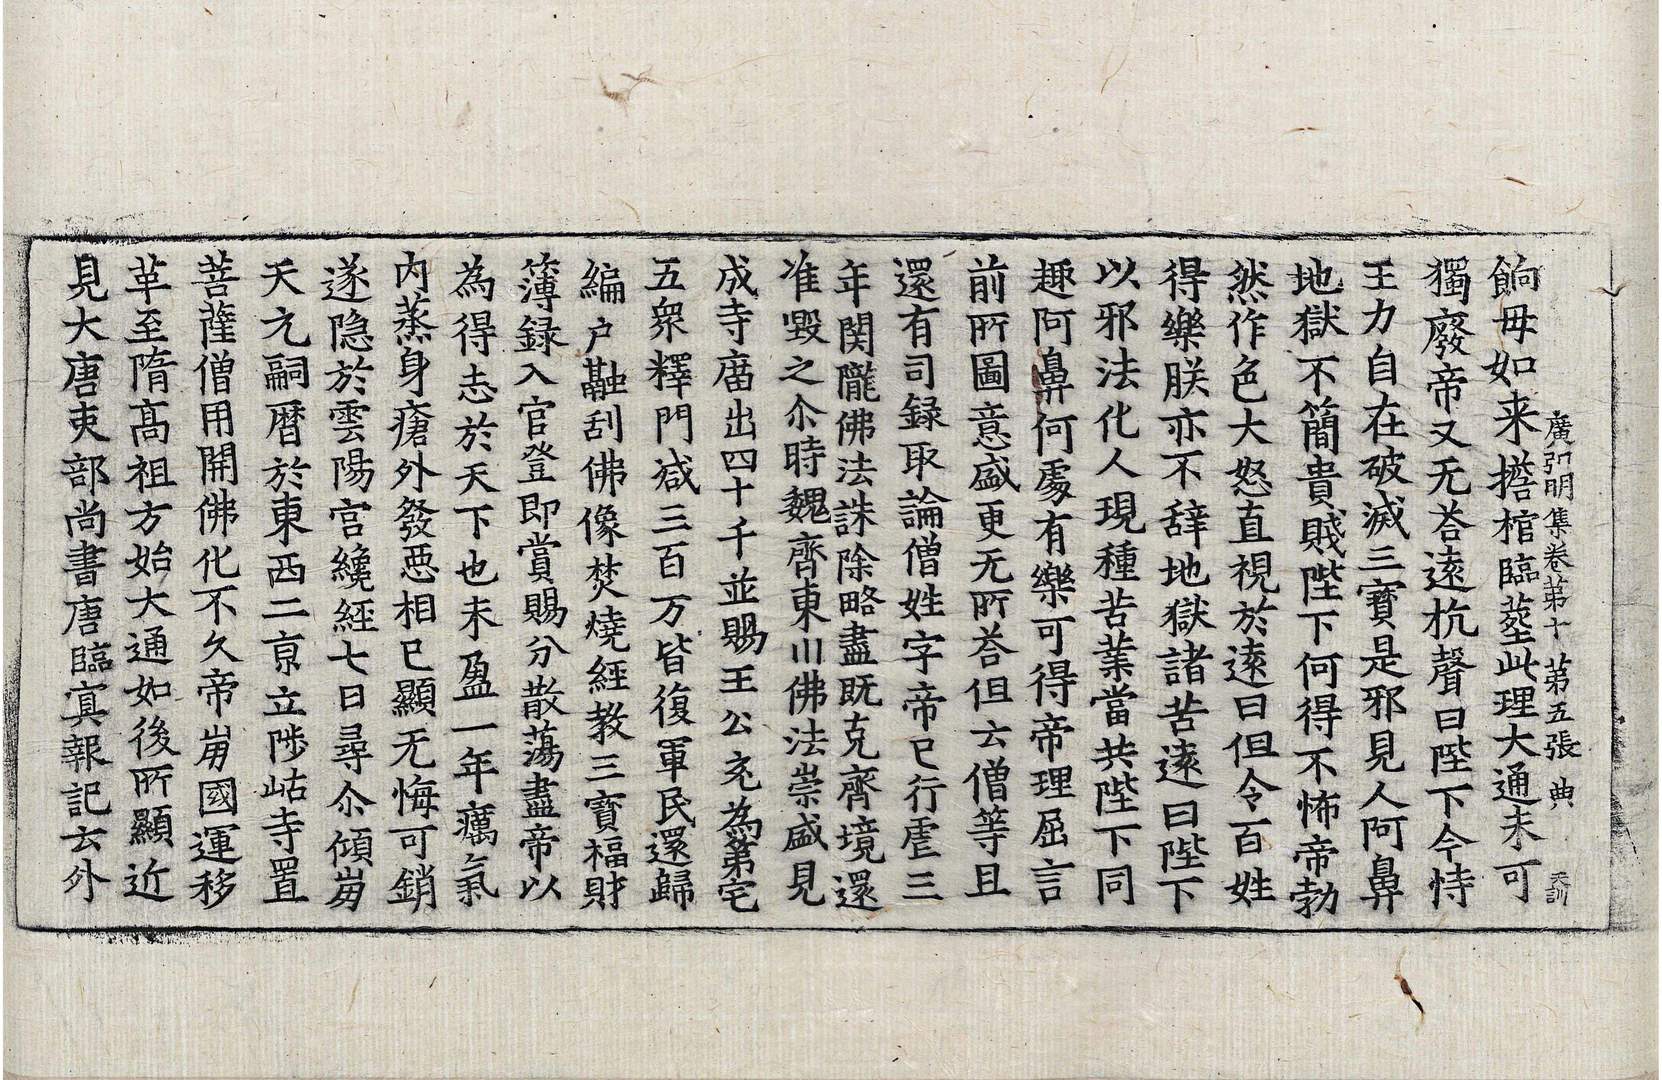 廣弘明集卷第十 第五張 典
天訓
餉母如来擔棺臨葬此理大通未可
獨廢帝又无荅遠抗聲曰陛下今恃
王力自在破滅三寶是邪見人阿鼻
地獄不簡貴賤陛下何得不怖帝勃
然作色大怒直視於遠曰但令百姓
得樂朕亦不辭地獄諸苦遠曰陛下
以邪法化人現種苦業當共陛下同
趣阿鼻何處有樂可得帝理屈言
前所圖意盛更无所荅但云僧等且
還有司録取論僧姓字帝已行虐三
年関隴佛法誅除略盡既克齊境還
准毀之尒時魏齊東川佛法崇盛見
成寺廟出四十千並賜王公充為第宅
五衆釋門減三百万皆復軍民還歸
編户融刮佛像焚燒經教三寶福財
簿録入官登即賞賜分散蕩盡帝以
為得志於天下也未盈一年癘氣
内蒸身瘡外發惡相已顯无悔可銷
遂隐於雲陽宫纔經七日尋尒傾崩
天元嗣曆於東西二京立陟岵寺置
菩薩僧用開佛化不久帝崩國運移
革至隋髙祖方始大通如後所顯近
見大唐吏部尚書唐臨冥報記云外